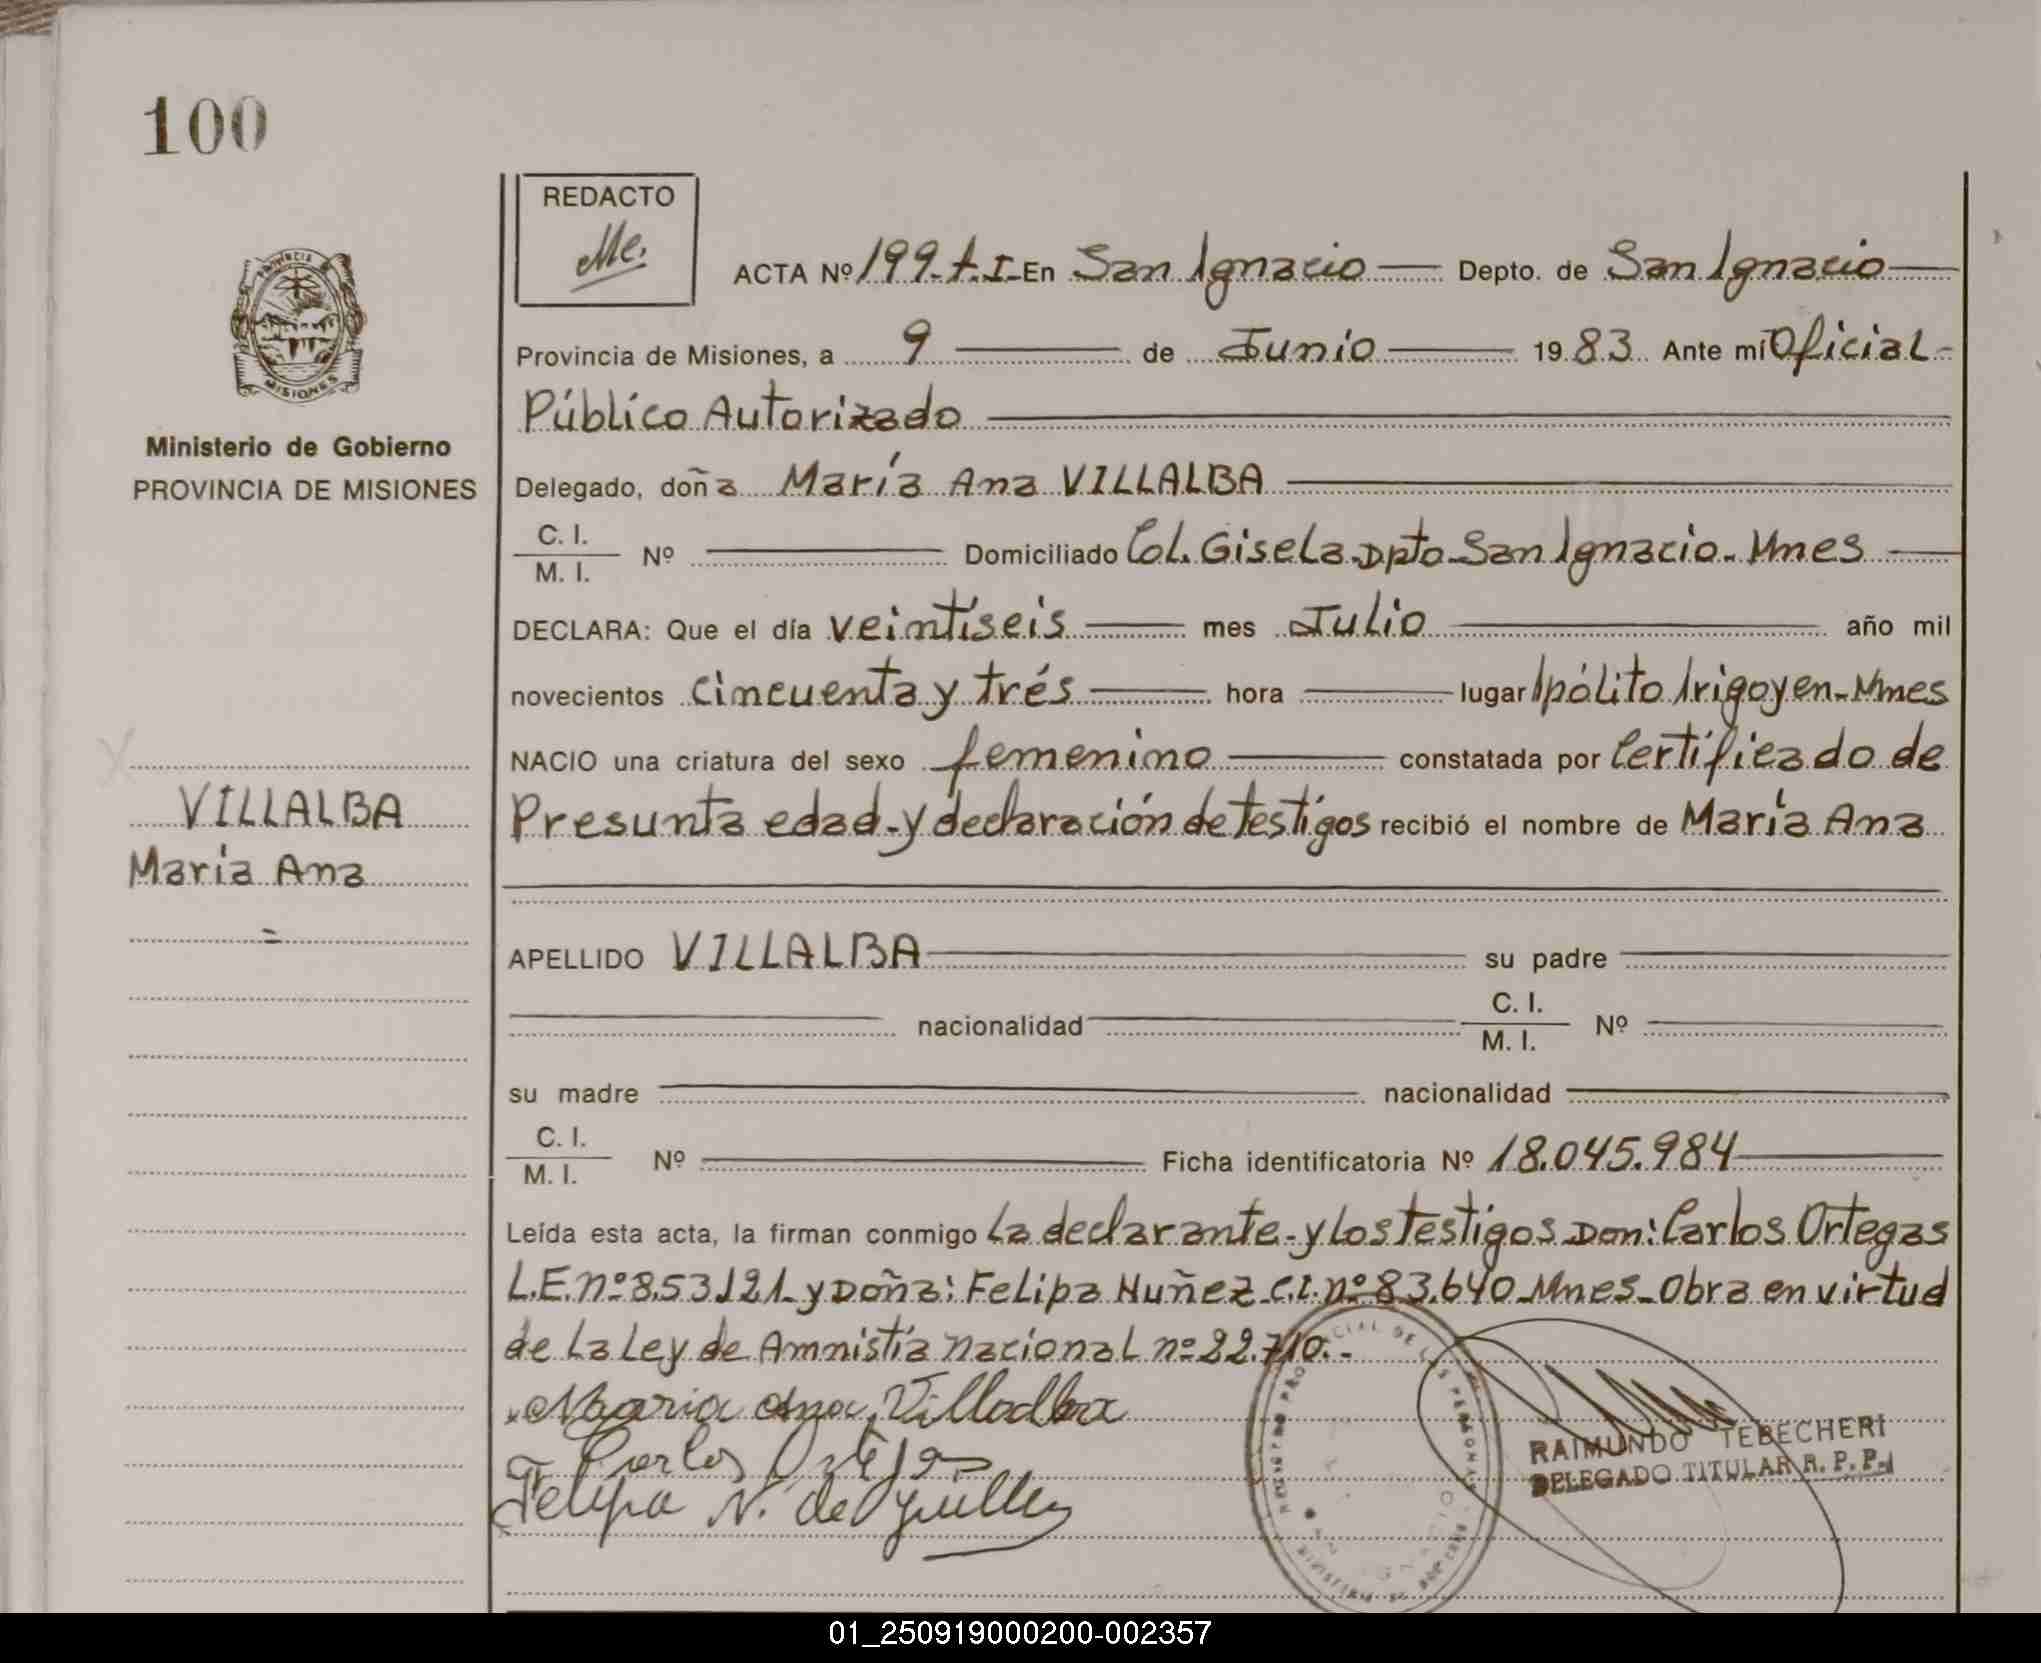 100
REDACTO
Me.
ACTA Nº 199-t.I-En San Ignacio Depto. de San Ignacio
Provincia de Misiones, a 9 de Junio 1983. Ante mí Oficial-
Público Autorizado
Ministerio de Gobierno
PROVINCIA DE MISIONES
Delegado, doña María Ana VILLALBA
C. I.
M. I. Nº Domiciliado Col. Gisela-Dpto-San Ignacio-Mnes
DECLARA: Que el día veintiseis mes Julio año mil
novecientos cincuenta y trés hora lugar Ipólito Irigoyen-Mnes
NACIO una criatura del sexo femenino constatada por Certificado de
Presunta edad-y declaración de testigos recibió el nombre de María Ana
VILLALBA
María Ana
=
APELLIDO VILLALBA su padre
nacionalidad C. I.
M. I. Nº
su madre nacionalidad
C. I.
M. I. Nº Ficha identificatoria Nº 18.045.984
Leída esta acta, la firman conmigo La declarante-y Los testigos Don: Carlos Ortegas
L.E.nº 8.53.121-y Doña: Felipa Nuñez-C.I.nº 83.640-Mnes-Obra en virtud
de La Ley de Amnistía Nacional nº 22.710.-
Maaria Ana Villadba
Carlos Ortegas
Felipa N. de
MISIONES
RAIMUNDO TEBECHERI
DELEGADO TITULAR R. P. P.
01_250919000200-002357